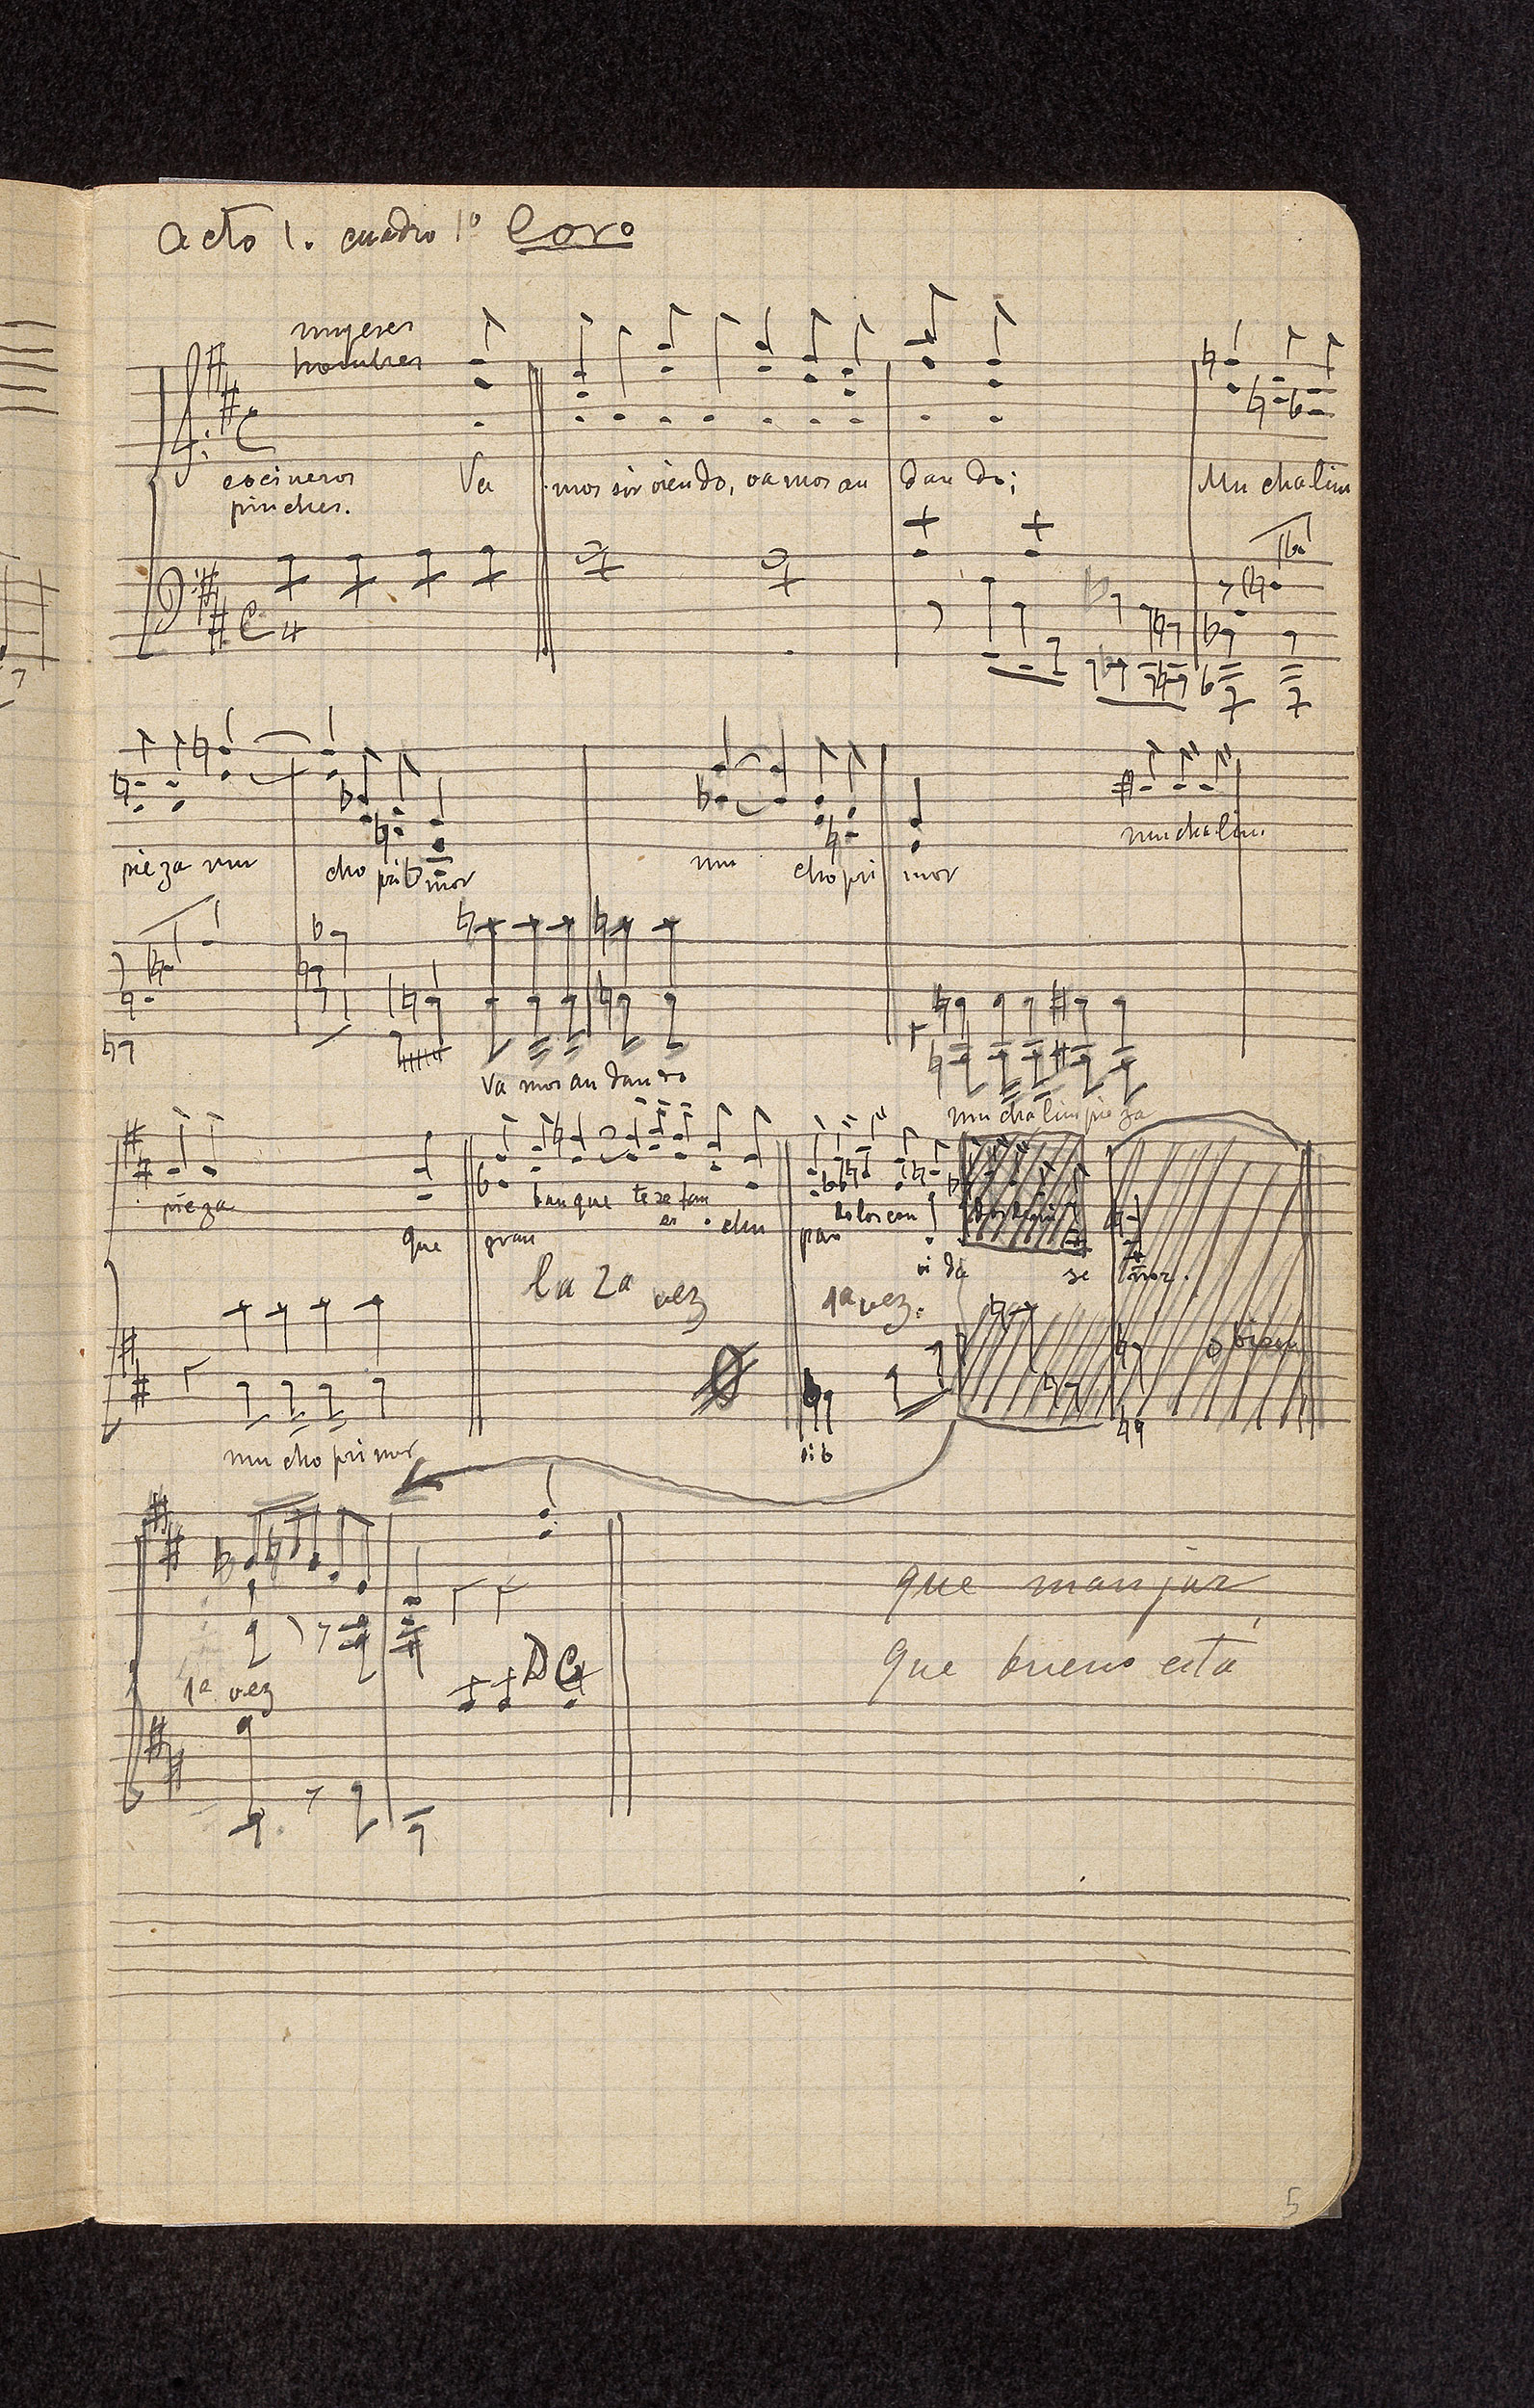 Acto 1. cuadro 1º Coro
mujeres
hombres
cocineros
pinches.
Va mos sir viendo, va mos an dan do; Mu cha lim
pie za mu cho pri mor mu cho pri mor mu cha lim.
Va mos an dan do
mu cha lim pie za
pie za que gran ban que te se tan
es
la 2a vez
1ª vez.
o bien
mu cho pri mor
si b
1ª vez
DC
que manjar
que bueno está
5